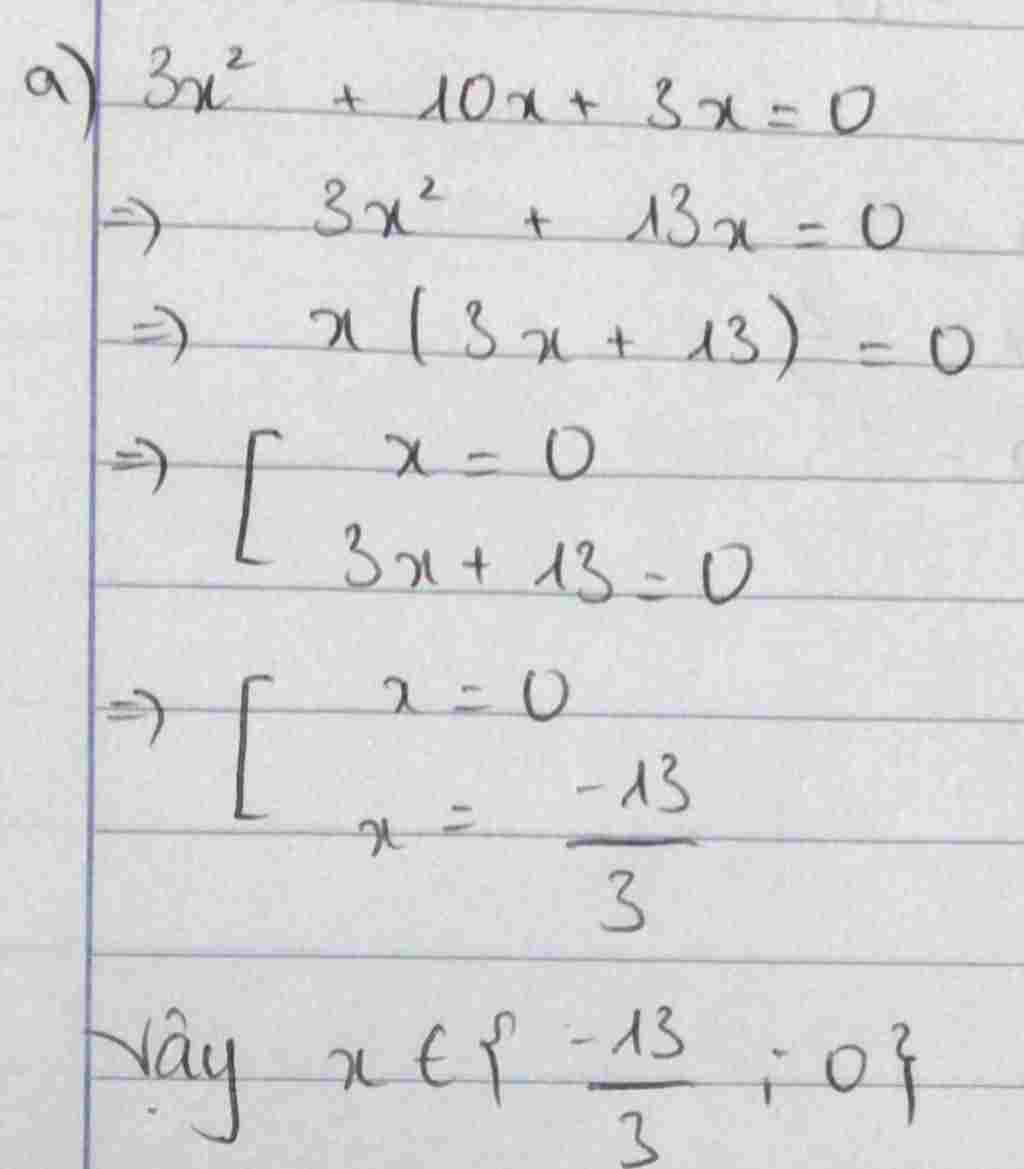 a) 3x² + 10x + 3x = 0
=> 3x² + 13x = 0
=> x (3x + 13) = 0
=> [ x = 0
3x + 13 = 0
=> [ x = 0
x = -13/3
Vậy x ∈ { -13/3 ; 0 }